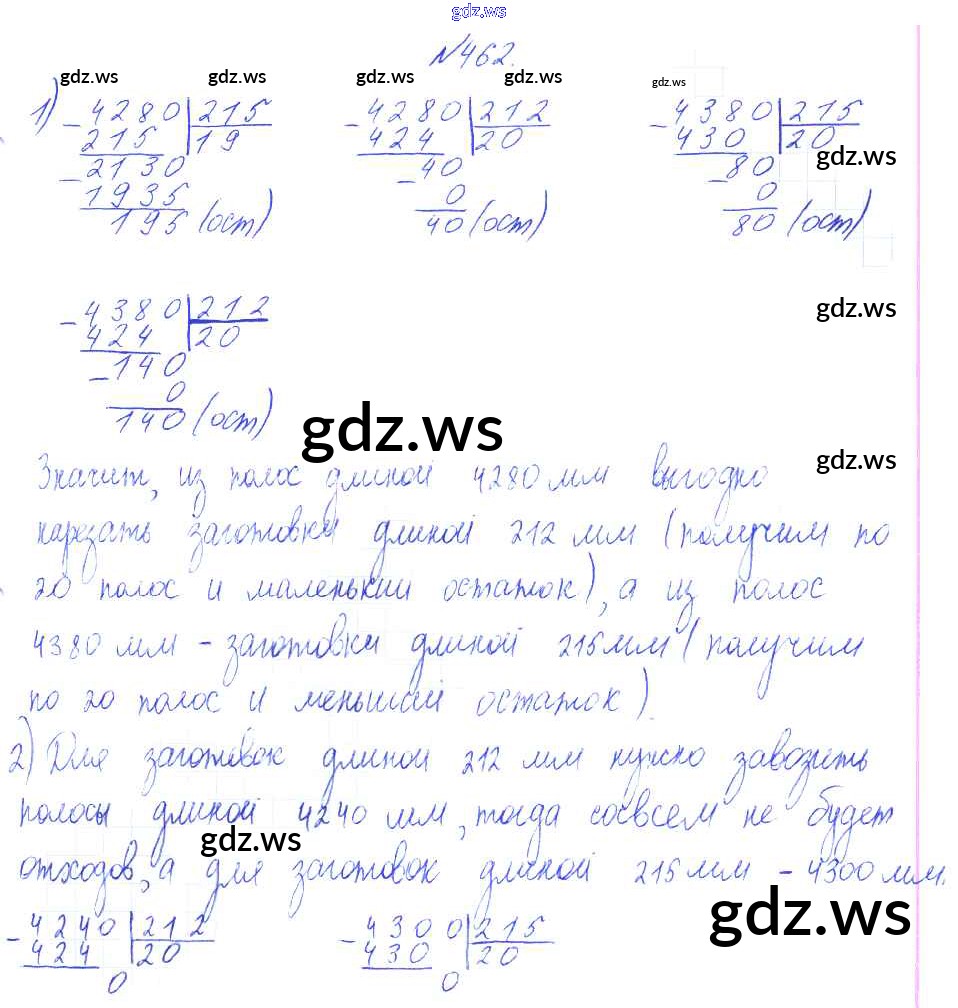 gdz.ws
№462.
gdz.ws gdz.ws gdz.ws gdz.ws
1) - 4280 | 215 - 4280 | 212 - 4380 | 215
215 | 19 424 | 20 430 | 20 gdz.ws
- 2130 - 40 - 80
1935 0 0
195 (ост) 40 (ост) 80 (ост)
- 4380 | 212 gdz.ws
424 | 20
- 140
0
140 (ост) gdz.ws
Значит, из полос длиной 4280 мм выгодно gdz.ws
нарезать заготовки длиной 212 мм (получим по
20 полос и маленький остаток), а из полос
4380 мм - заготовки длиной 215 мм (получим
по 20 полос и меньший остаток).
2) Для заготовок длиной 212 мм нужно завозить
полосы длиной 4240 мм, тогда совсем не будет
gdz.ws
отходов, а для заготовок длиной 215 мм - 4300 мм.
gdz.ws
- 4240 | 212 - 4300 | 215
424 | 20 430 | 20
0 0